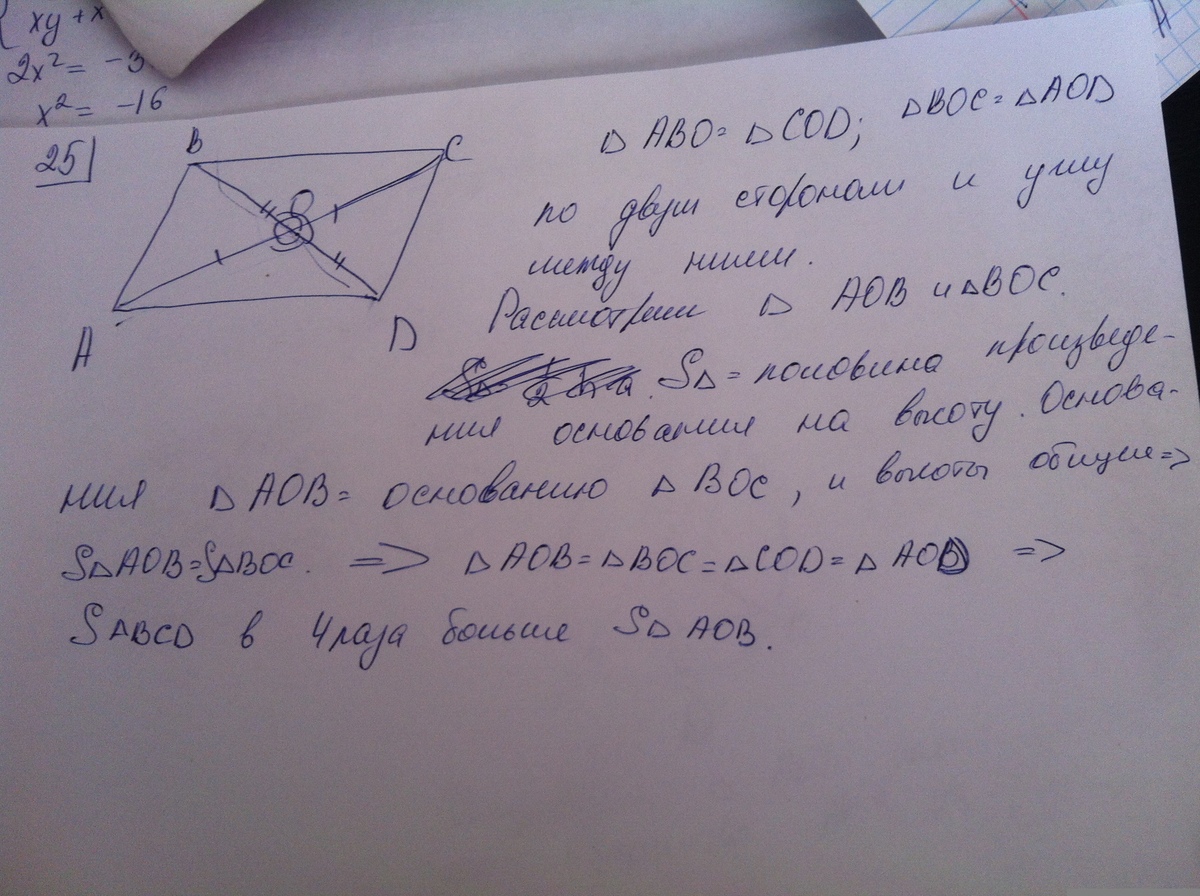 xy + x
2x² = -3
x² = -16
25
B
C
O
A
D
△ ABO = △ COD; △BOC = △AOD
по двум сторонам и углу
между ними.
Рассмотрим △ AOB и △BOC.
S△ = половина произведе-
ния основания на высоту. Основа-
ния △ AOB = основанию △ BOC, и высоты общие =>
S△AOB = S△BOC. => △ AOB = △BOC = △COD = △ AOD =>
SABCD в 4 раза больше S△ AOB.